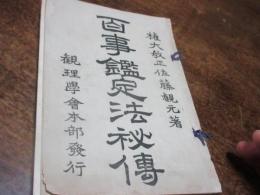 権大教正佐藤観元著
百事鑑定法秘傳
観理學會本部發行